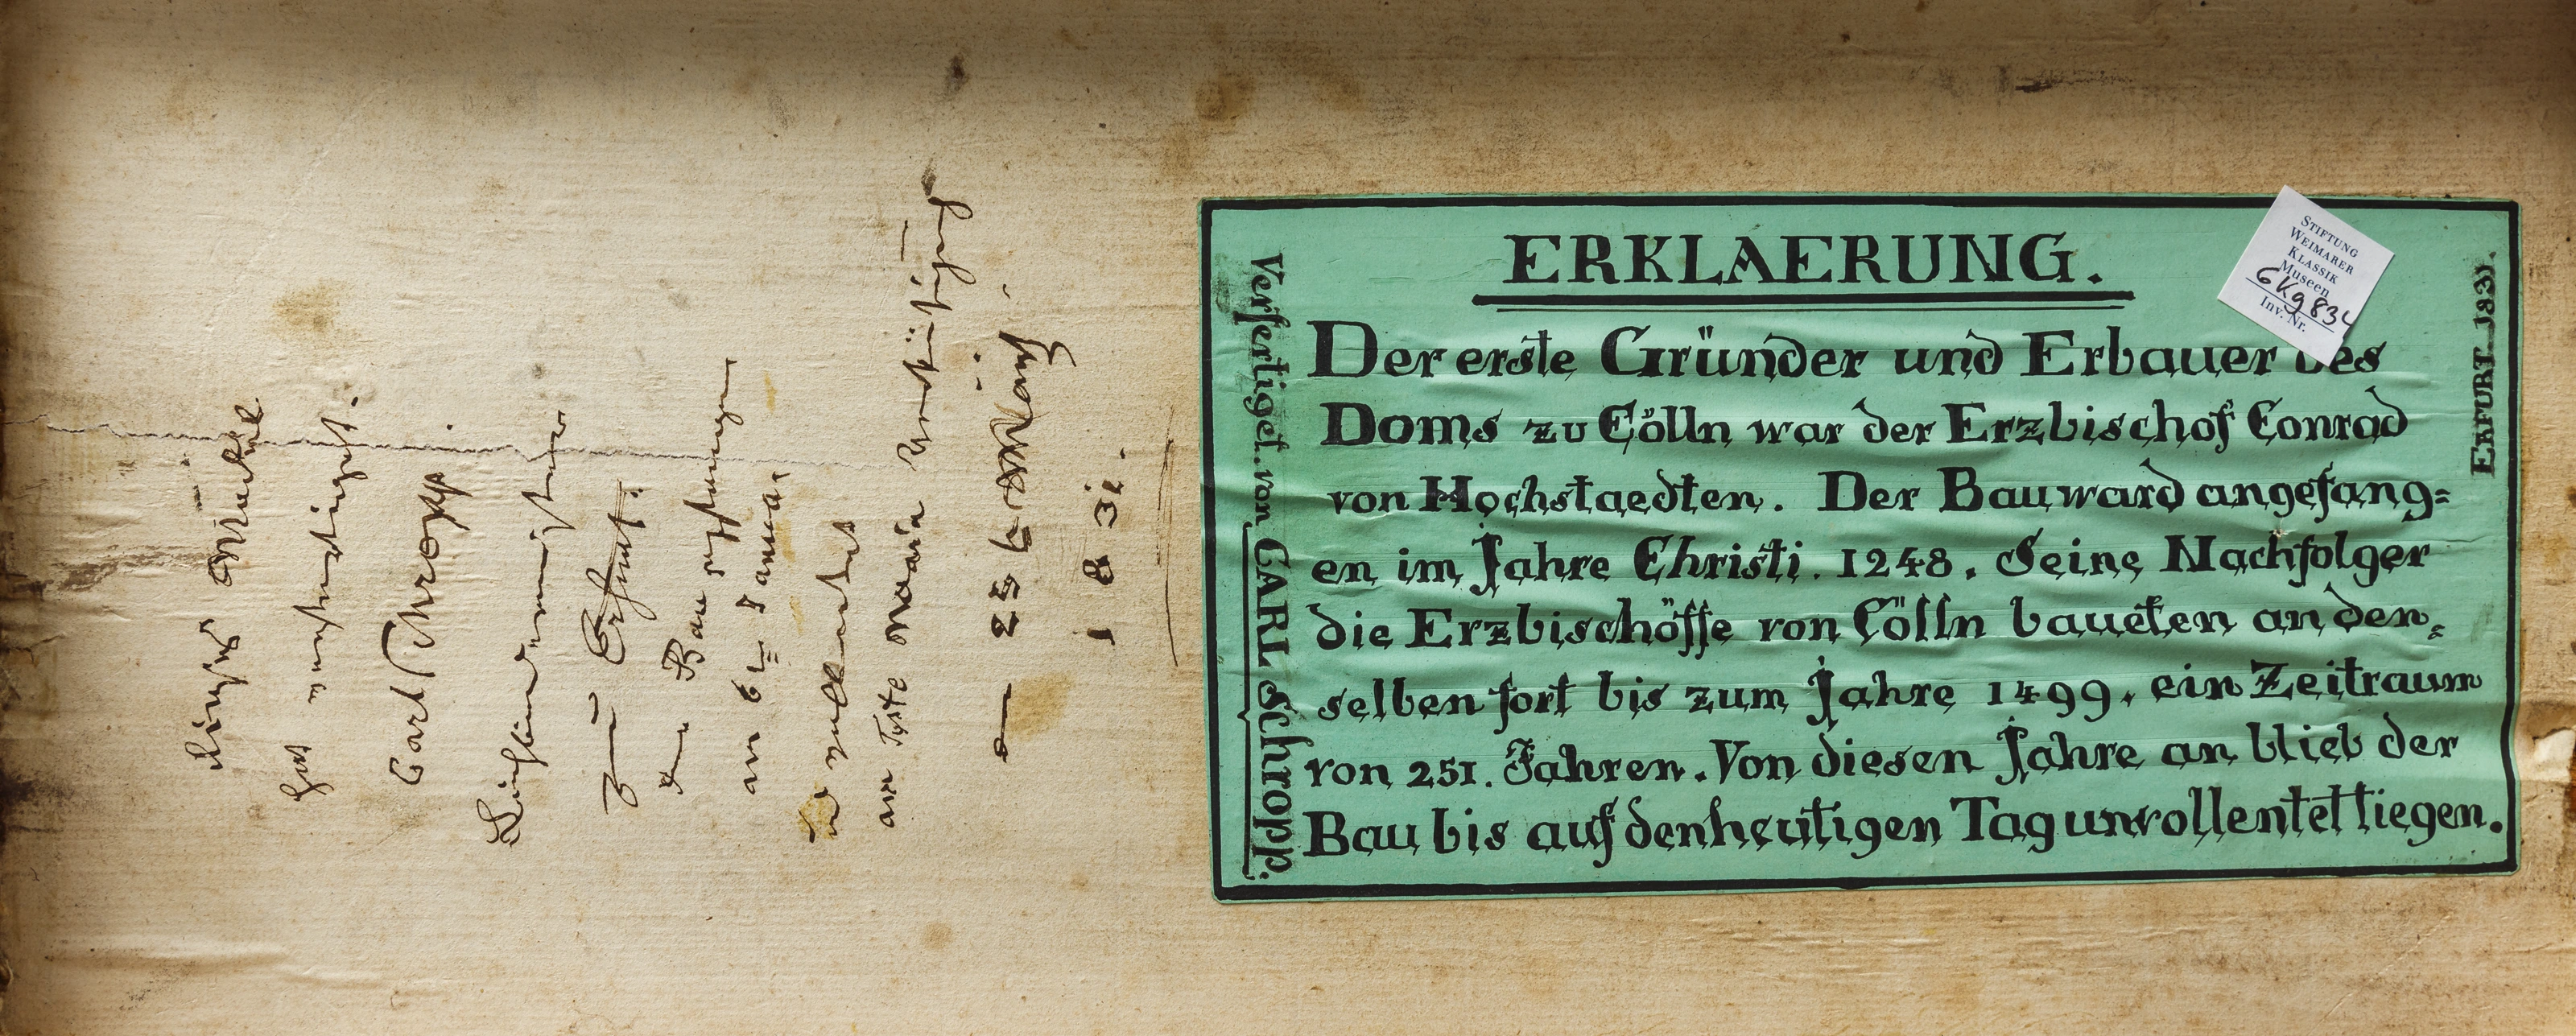 Dieses Modell
hat verfertiget.
Carl Schropp
zu Erfurt.
den Bau angefangen
am 6t Januar
u vollendet
am Feste Mariä Verkündigung
— 25 t März.
1 8 3i.
ERKLAERUNG.
Der erste Gründer und Erbauer des
Doms zu Cölln war der Erzbischof Conrad
von Hochstaedten. Der Bau ward angefang=
en im Jahre Christi. 1248. Seine Nachfolger
die Erzbischöffe von Cölln baueten an den=
selben fort bis zum Jahre 1499. ein Zeitraum
von 251. Jahren. Von diesen Jahre an blieb der
Bau bis auf den heutigen Tag unvollentet liegen.
Verfertiget. von CARL Schropp.
ERFURT 1831.
STIFTUNG
WEIMARER
KLASSIK
Museen
GKg 832
Inv. Nr.